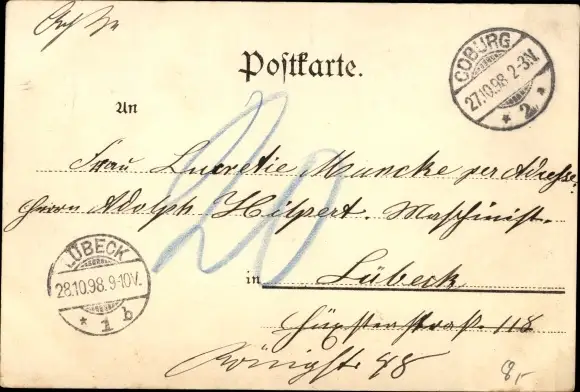 Postkarte.
COBURG
27.10.98. 2-3N.
* 2 a
An
20
Frau Lucretie Mancke per Adresse:
Herrn Adolph Hilpert. Maschinist.
in Lübeck
LÜBECK
28.10.98. 9-10V.
* 1 b
Hüxsterstraße 118
Königstr 98
8,-